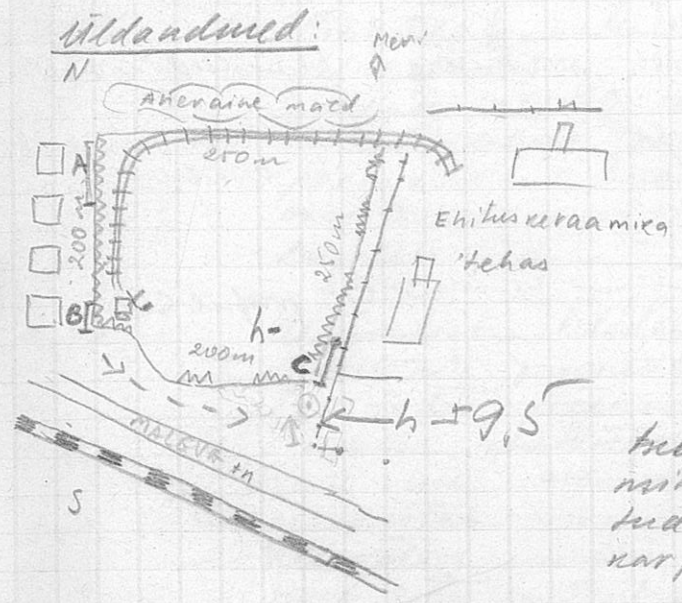 Üldandmed:
N
Meri
Aheraine mäed
250m
A
200 m
Ehituskeraamika
tehas
250m
B
h-
200m
C
h +9,5
MALEVA tn
S